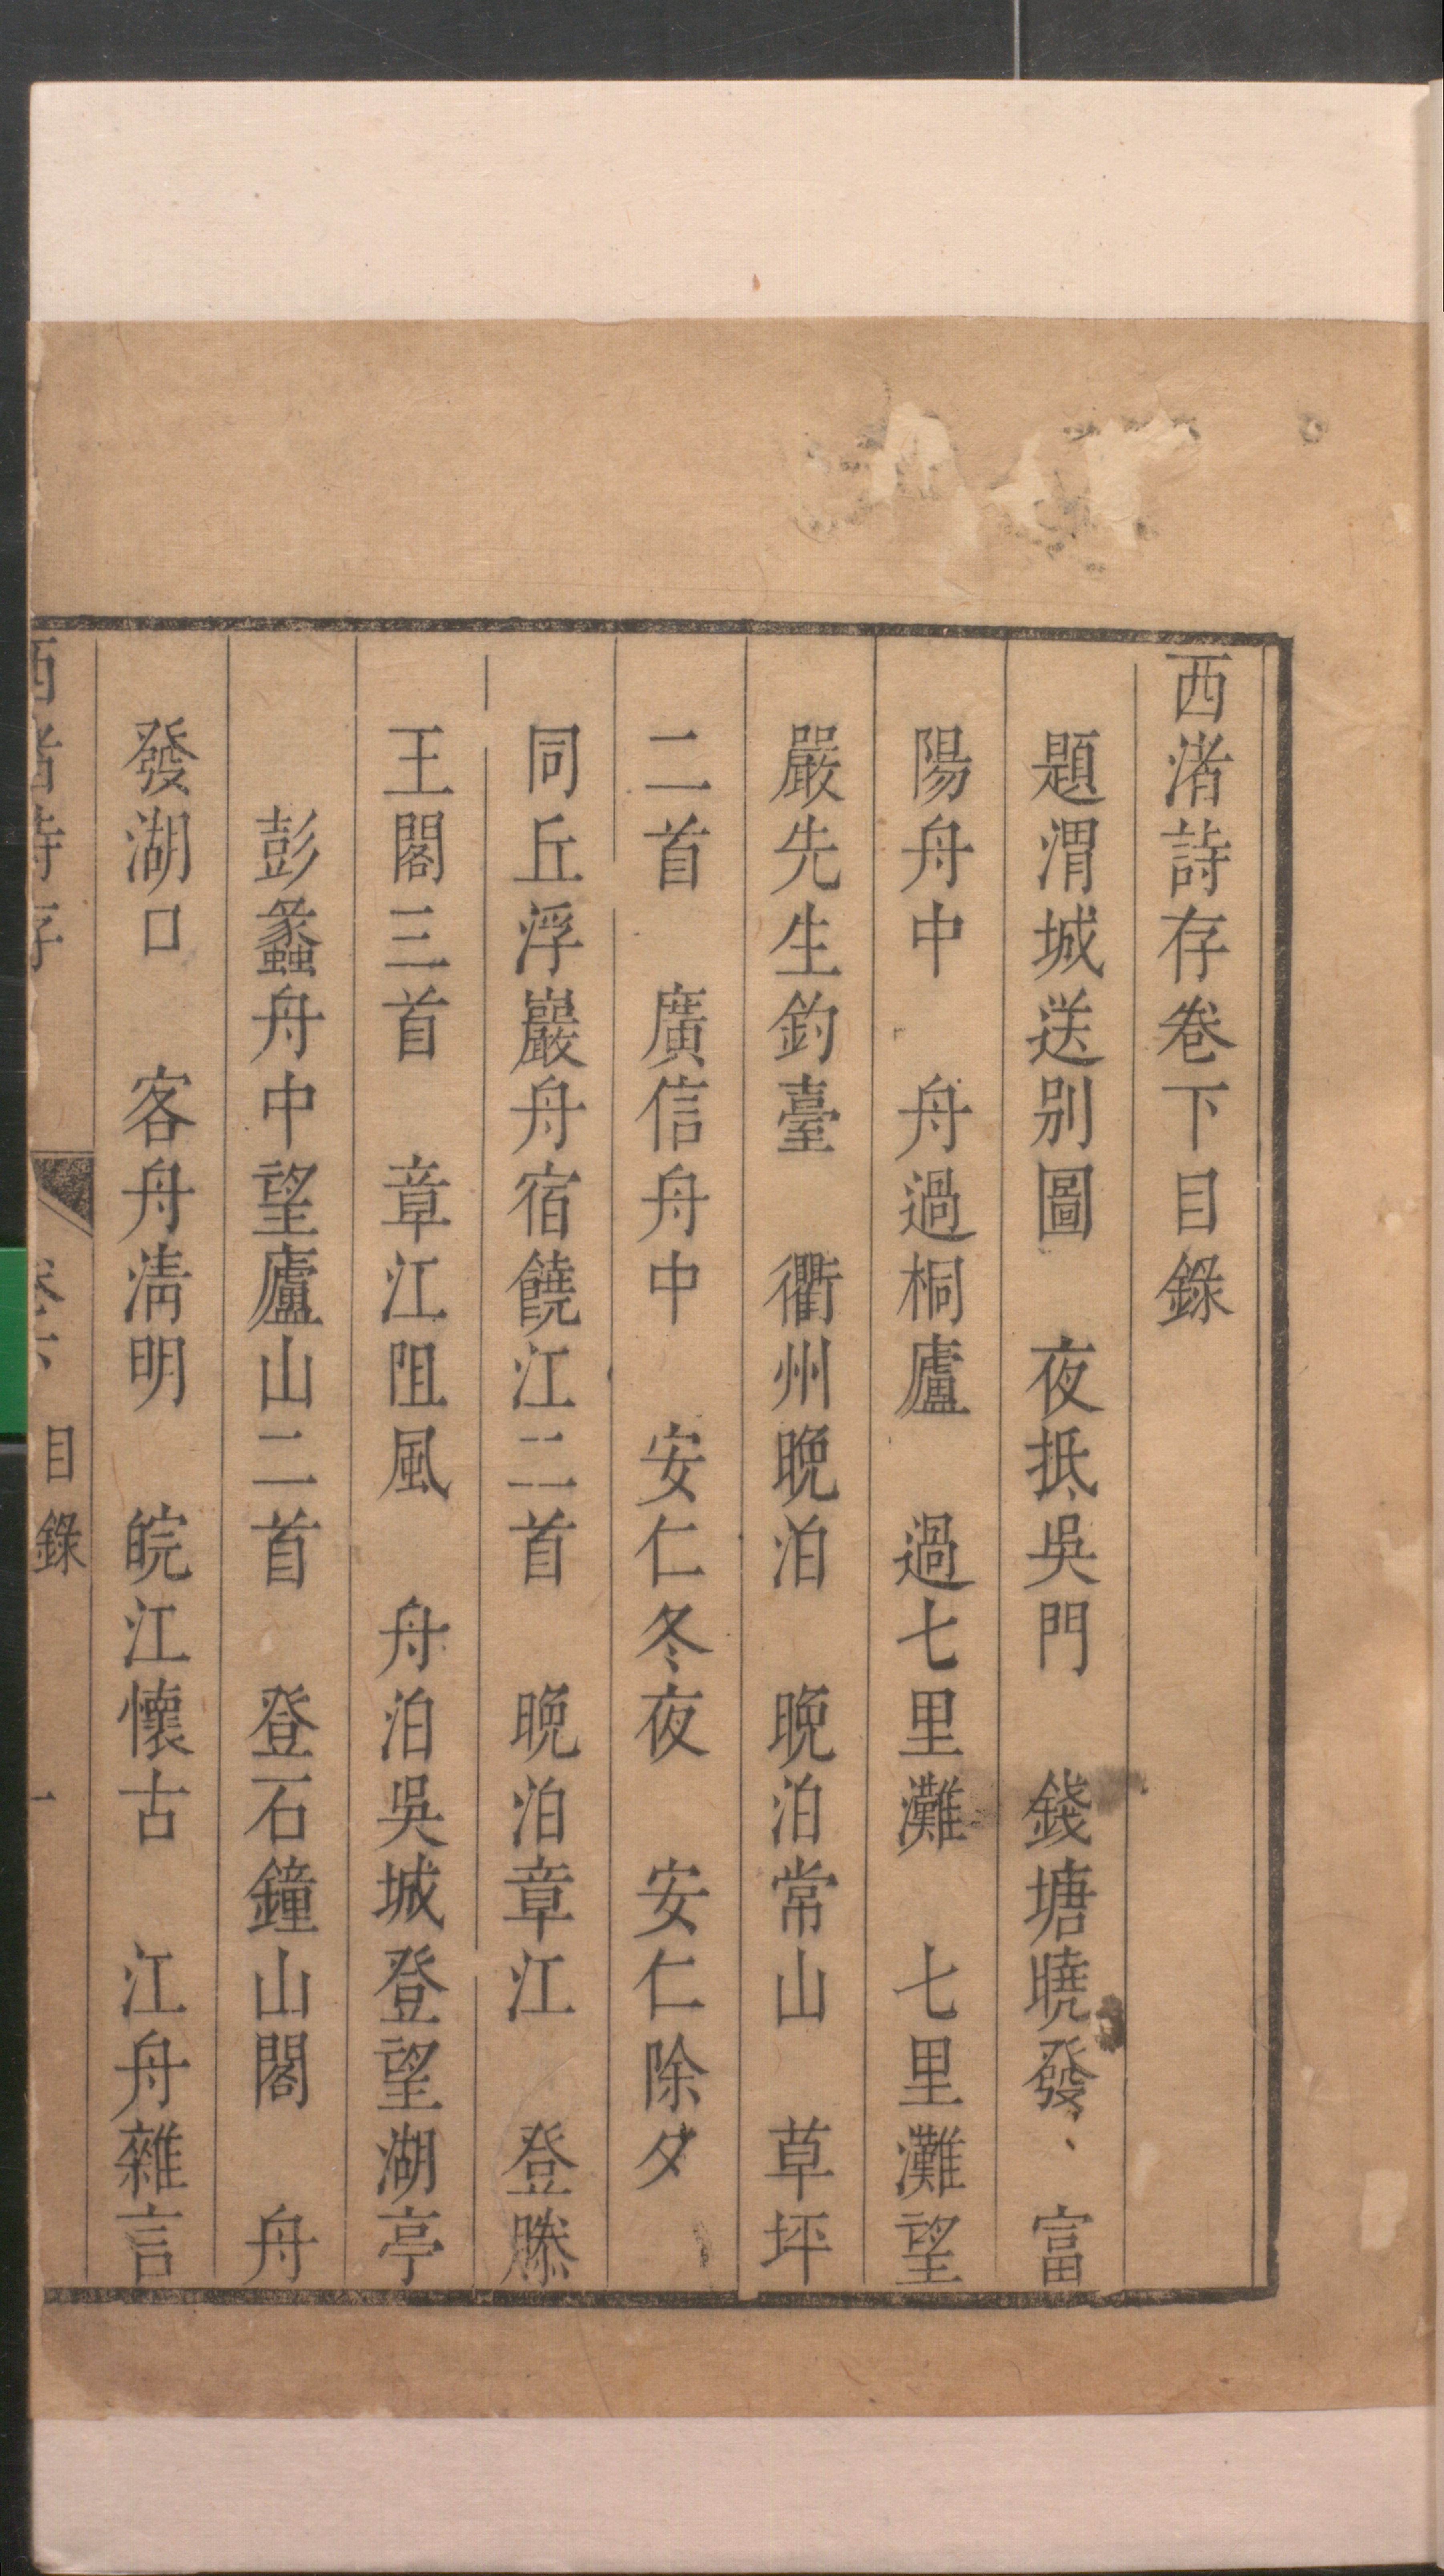 西渚詩存卷下目錄
題渭城送別圖　夜抵吳門　錢塘曉發　富
陽舟中　舟過桐廬　過七里灘　七里灘望
嚴先生釣臺　衢州晚泊　晚泊常山　草坪
二首　廣信舟中　安仁冬夜　安仁除夕
同丘浮巖舟宿饒江二首　晚泊章江　登滕
王閣三首　章江阻風　舟泊吳城登望湖亭
彭蠡舟中望廬山二首　登石鐘山閣　舟
發湖口　客舟清明　皖江懷古　江舟雜言
西渚詩存　卷下　目錄　一